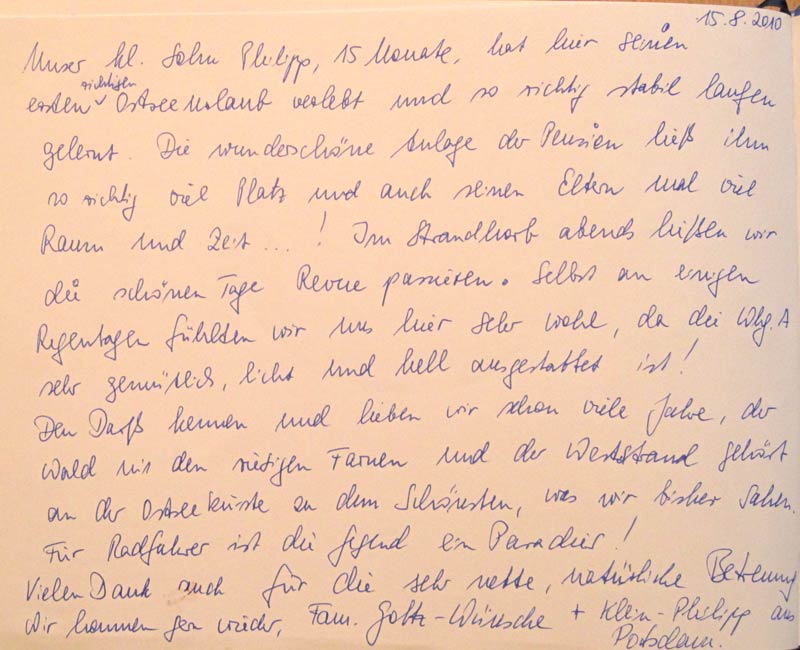 15.8.2010
Unser kl. Sohn Philipp, 15 Monate, hat hier seinen
richtigen
ersten Ostseeurlaub verlebt und so richtig stabil laufen
gelernt. Die wunderschöne Anlage der Pension ließ ihm
so richtig viel Platz und auch seinen Eltern mal viel
Raum und Zeit ... ! Im Strandkorb abends ließen wir
die schönen Tage Revue passieren. Selbst an einigen
Regentagen fühlten wir uns hier sehr wohl, da die Whg. A
sehr gemütlich, licht und hell ausgestattet ist!
Den Darß kennen und lieben wir schon viele Jahre, der
Wald mit den riesigen Farnen und der Weststrand gehört
an der Ostseeküste zu dem Schönsten, was wir bisher sahen.
Für Radfahrer ist die Gegend ein Paradies!
Vielen Dank auch für die sehr nette, natürliche Betreuung
Wir kommen gern wieder, Fam. -Wünsche + Klein-Philipp aus
Potsdam.